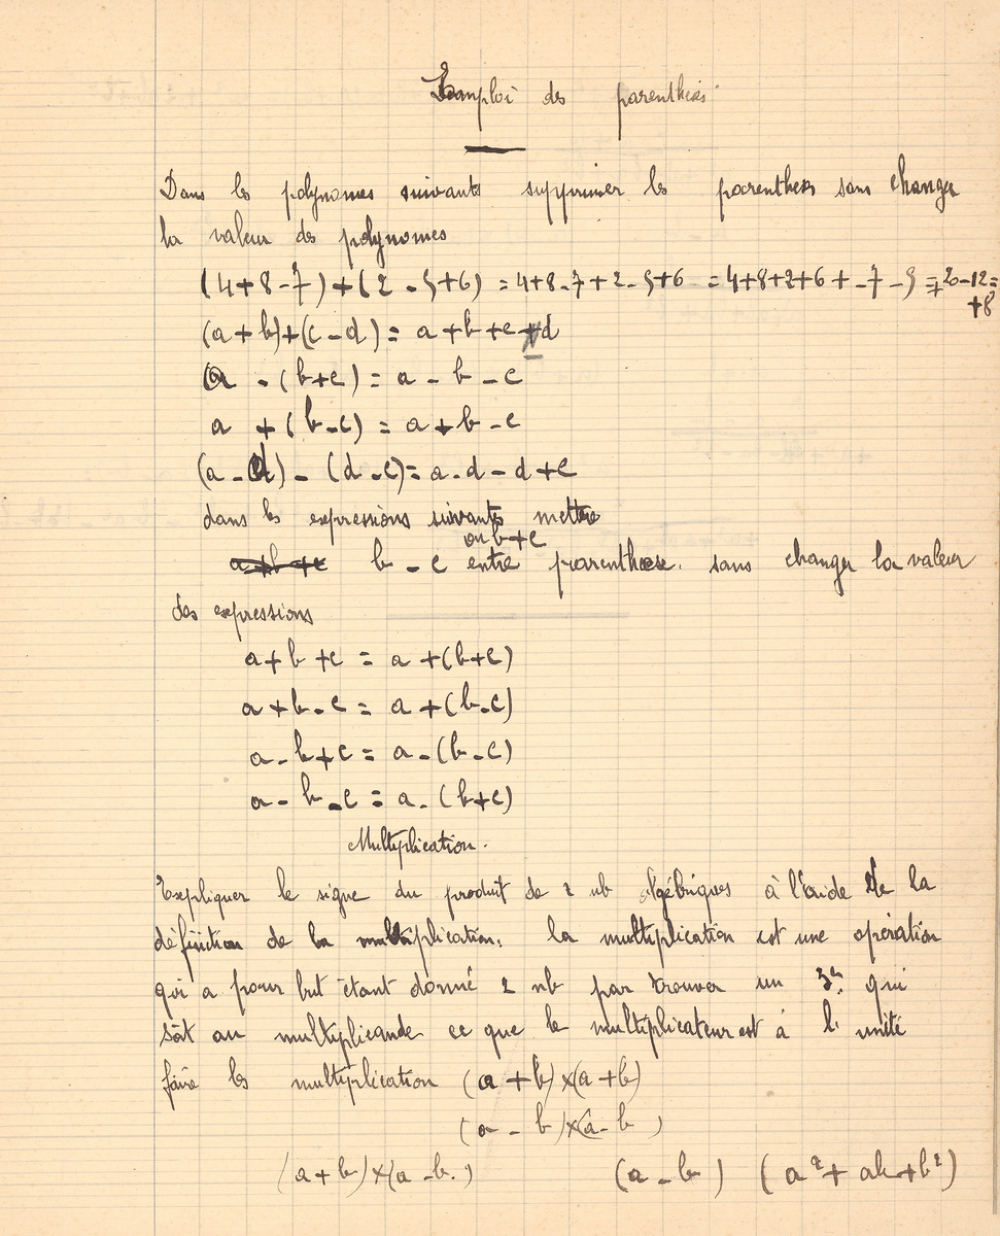 L'emploi des parenthèses
Dans les polynomes suivants supprimer les parentheses sans changer
la valeur des polynomes
(4+8-7)+(2-5+6) = 4+8-7+2-5+6 = 4+8+2+6+-7-5 = + 20-12=
+8
(a+b)+(c-d) = a+b+c-d
a -(b+c) = a - b - c
a +(b-c) = a+b-c
(a-d)-(d-c) = a-d-d+c
dans les expressions suivants mettre
ou b+c
a+b+c b - c entre parenthese. sans changer la valeur
des expressions
a+b+c = a+(b+c)
a+b-c = a+(b-c)
a-b+c = a-(b-c)
a-b-c = a-(b+c)
Multiplication.
Expliquer le signe du produit de 2 nb algébriques à l'aide de la
définition de la multiplication. la multiplication est une opération
qui a pour but étant donné 2 nb par trouver un 3e qui
soit au multiplicande ce que le multiplicateur est à l'unité
faire les multiplication (a+b)×(a+b)
(a - b)×(a-b)
(a+b)×(a-b.) (a-b) (a²+ab+b²)